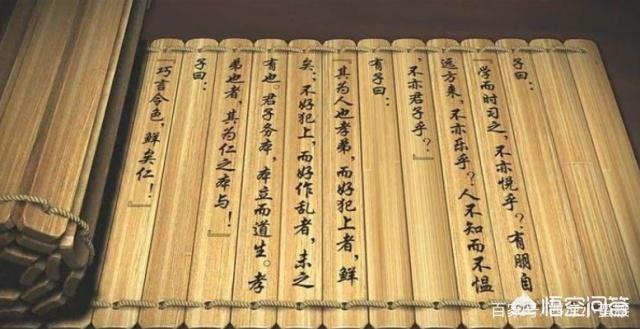 子曰：
『学而时习之，不亦悦乎？有朋自
远方来，不亦乐乎？人不知而不愠
，不亦君子乎？』
有子曰：
『其为人也孝弟，而好犯上者，鲜
矣；不好犯上，而好作乱者，未之
有也。君子务本，本立而道生。孝
弟也者，其为仁之本与！』
子曰：
『巧言令色，鲜矣仁！』
百家号
悟空问答